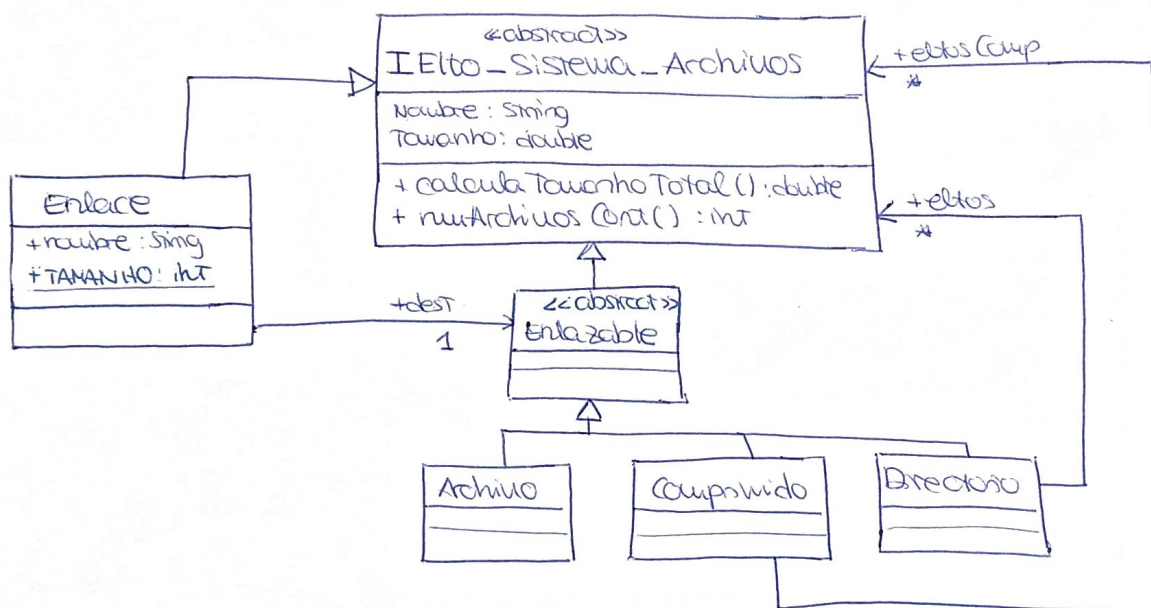 <<abstract>>
IElto_Sistema_Archivos
Nombre : String
Tamanho : double
+ calculaTamanhoTotal() : double
+ numArchivosCont() : int
+eltosComp
*
+eltos
*
Enlace
+nombre : String
+TAMANHO : int
+dest
1
<<abstract>>
Enlazable
Archivo
Comprimido
Directorio